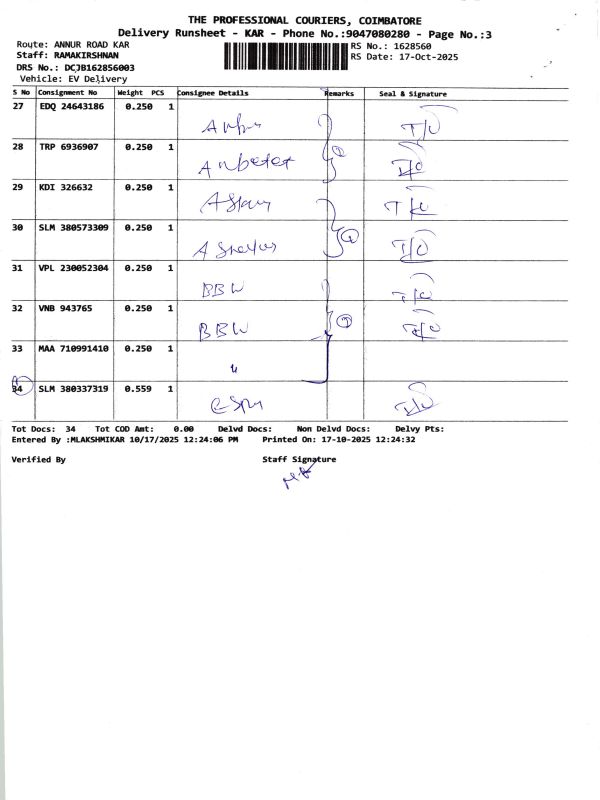 THE PROFESSIONAL COURIERS, COIMBATORE
Delivery Runsheet - KAR - Phone No.:9047080280 - Page No.:3
Route: ANNUR ROAD KAR RS No.: 1628560
Staff: RAMAKIRSHNAN RS Date: 17-Oct-2025
DRS No.: DCJB162856003
Vehicle: EV Delivery
S No Consignment No Weight PCS Consignee Details Remarks Seal & Signature
27 EDQ 24643186 0.250 1
28 TRP 6936907 0.250 1
29 KDI 326632 0.250 1
30 SLM 380573309 0.250 1
31 VPL 230052304 0.250 1 BBW
32 VNB 943765 0.250 1 BBW
33 MAA 710991410 0.250 1 "
34 SLM 380337319 0.559 1
Tot Docs: 34 Tot COD Amt: 0.00 Delvd Docs: Non Delvd Docs: Delvy Pts:
Entered By :MLAKSHMIKAR 10/17/2025 12:24:06 PM Printed On: 17-10-2025 12:24:32
Verified By Staff Signature